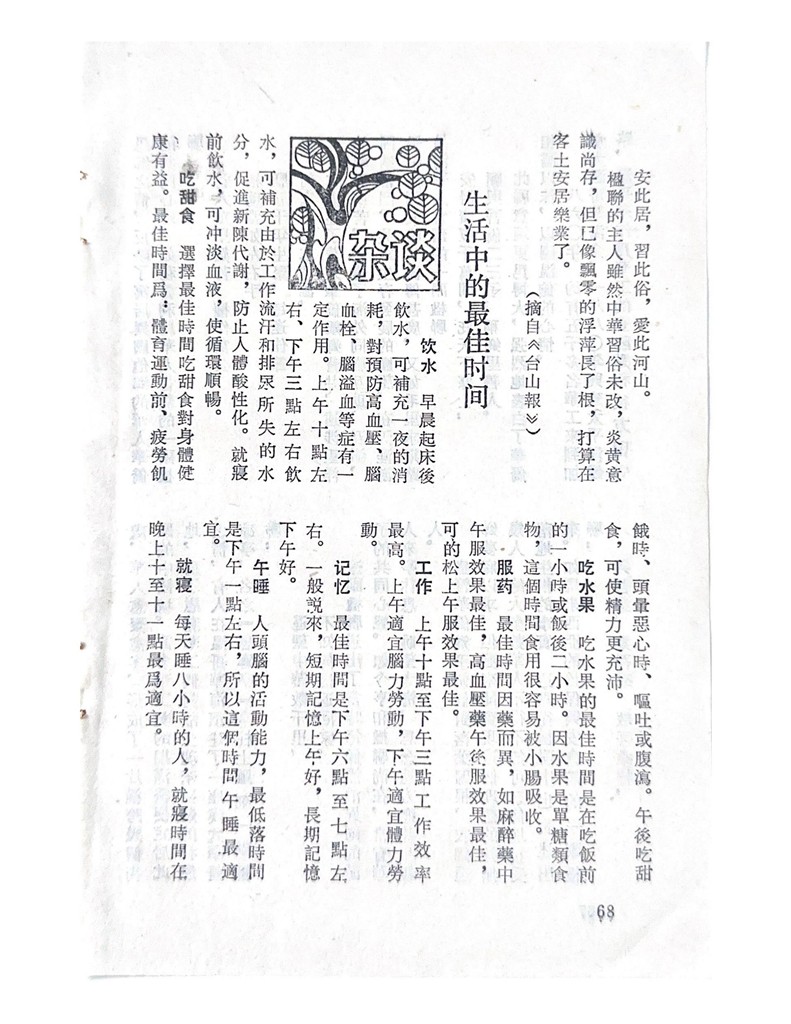 安此居，習此俗，愛此河山。
楹聯的主人雖然中華習俗未改，炎黄意
識尚存，但已像飄零的浮萍長了根，打算在
客土安居樂業了。
（摘自《台山報》）
生活中的最佳时间
杂谈
饮水　早晨起床後
飲水，可補充一夜的消
耗，對預防高血壓、腦
血栓、腦溢血等症有一
定作用。上午十點左
右、下午三點左右飲
水，可補充由於工作流汗和排尿所失的水
分，促進新陳代謝，防止人體酸性化。就寢
前飲水，可冲淡血液，使循環順暢。
吃甜食　選擇最佳時間吃甜食對身體健
康有益。最佳時間爲：體育運動前、疲勞飢
餓時、頭暈惡心時、嘔吐或腹瀉。午後吃甜
食，可使精力更充沛。
吃水果　吃水果的最佳時間是在吃飯前
的一小時或飯後二小時。因水果是單糖類食
物，這個時間食用很容易被小腸吸收。
服药　最佳時間因藥而異，如麻醉藥中
午服效果最佳，高血壓藥午後服效果最佳，
可的松上午服效果最佳。
工作　上午十點至下午三點工作效率
最高。上午適宜腦力勞動，下午適宜體力勞
動。
记忆　最佳時間是下午六點至七點左
右。一般説來，短期記憶上午好，長期記憶
下午好。
午睡　人頭腦的活動能力，最低落時間
是下午一點左右，所以這個時間午睡最適
宜。
就寝　每天睡八小時的人，就寢時間在
晚上十至十一點最爲適宜。
68